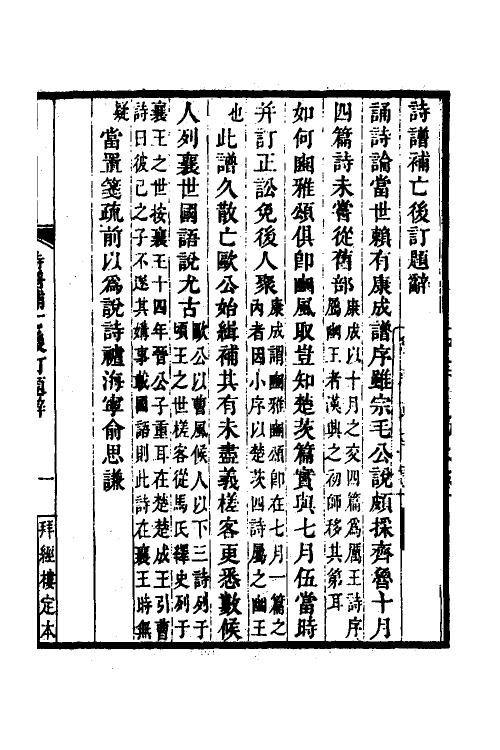 詩譜補亡後訂題辭
誦詩論當世賴有康成譜序雖宗毛公說頗採齊魯十月
四篇詩未嘗從舊部康成以十月之交四篇爲厲王詩序
屬幽王者漢興之初師移其第耳
如何豳雅頌俱卽豳風取豈知楚茨篇實與七月伍當時
并訂正訟免後人聚康成謂豳雅豳頌卽在七月一篇之
內者因小序以楚茨四詩屬之幽王
也
此譜久散亡歐公始緝補其有未盡義槎客更悉數候
人列襄世國語說尤古歐公以曹風候人以下三詩列于
頃王之世槎客從馬氏繹史列于
襄王之世按襄王十四年晉公子重耳在楚楚成王引曹
詩曰彼己之子不遂其媾事載國語則此詩在襄王時無
疑
當置箋疏前以爲說詩禮海寧俞思謙
詩譜補亡後訂題辭
一
拜經樓定本